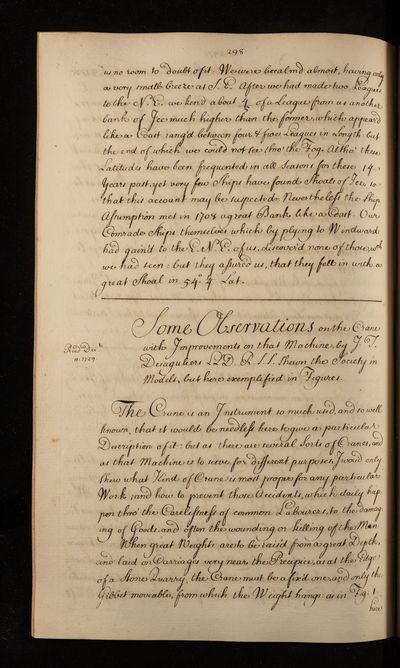 298
is no room to doubt of it. We were becalm'd almost, having only
a very small breeze at S. E. After we had made two Leagues
to the N. E. we ken'd about ¼ of a League from us another
bank of Ice much higher than the former, which appear'd
like a Coast rang'd between four & five Leagues in Length but
the end of which we could not see thro' the Fog. Altho' these
Latitudes have been frequented in all Seasons for these 14
Years past, yet very few Ships have found Shoals of Ice, so
that this account may be suspected. Nevertheless the Ship
Assumption met in 1708 a great Bank like a Coast. Our
Comrade Ships themselves which by plying to Windward
had gain'd to the E. N. E. of us, discover'd none of those wch
we had seen: but they assured us, that they fell in with a
great Shoal in 54° ¾ Lat.
Some Observations on the Crane
with Improvements on that Machine, by J. T.
Read Decr
11. 1729
Desaguliers LLD. R. S. S. shewn the Society in
Models, but here exemplified in Figures.
The Crane is an Instrument so much used, and so well
known, that it would be needless here to give a particular
Description of it: but as there are several Sorts of Cranes, and
as that Machine is to serve for different purposes, I would only
shew what Kind of Crane is most proper for any particular
Work; and how to prevent those Accidents, which daily hap-
pen thro' the Carelessness of common Labourers, to the damag-
ing of Goods, and often the wounding or killing of the Men.
When great Weights are to be rais'd from a great Depth,
and laid on Carriages very near the Precipice, as at the Edge
of a Stone Quarry, the Crane must be a fix'd one, and only the
Gibbet moveable, from which the Weight hangs as in Fig: 1.
here